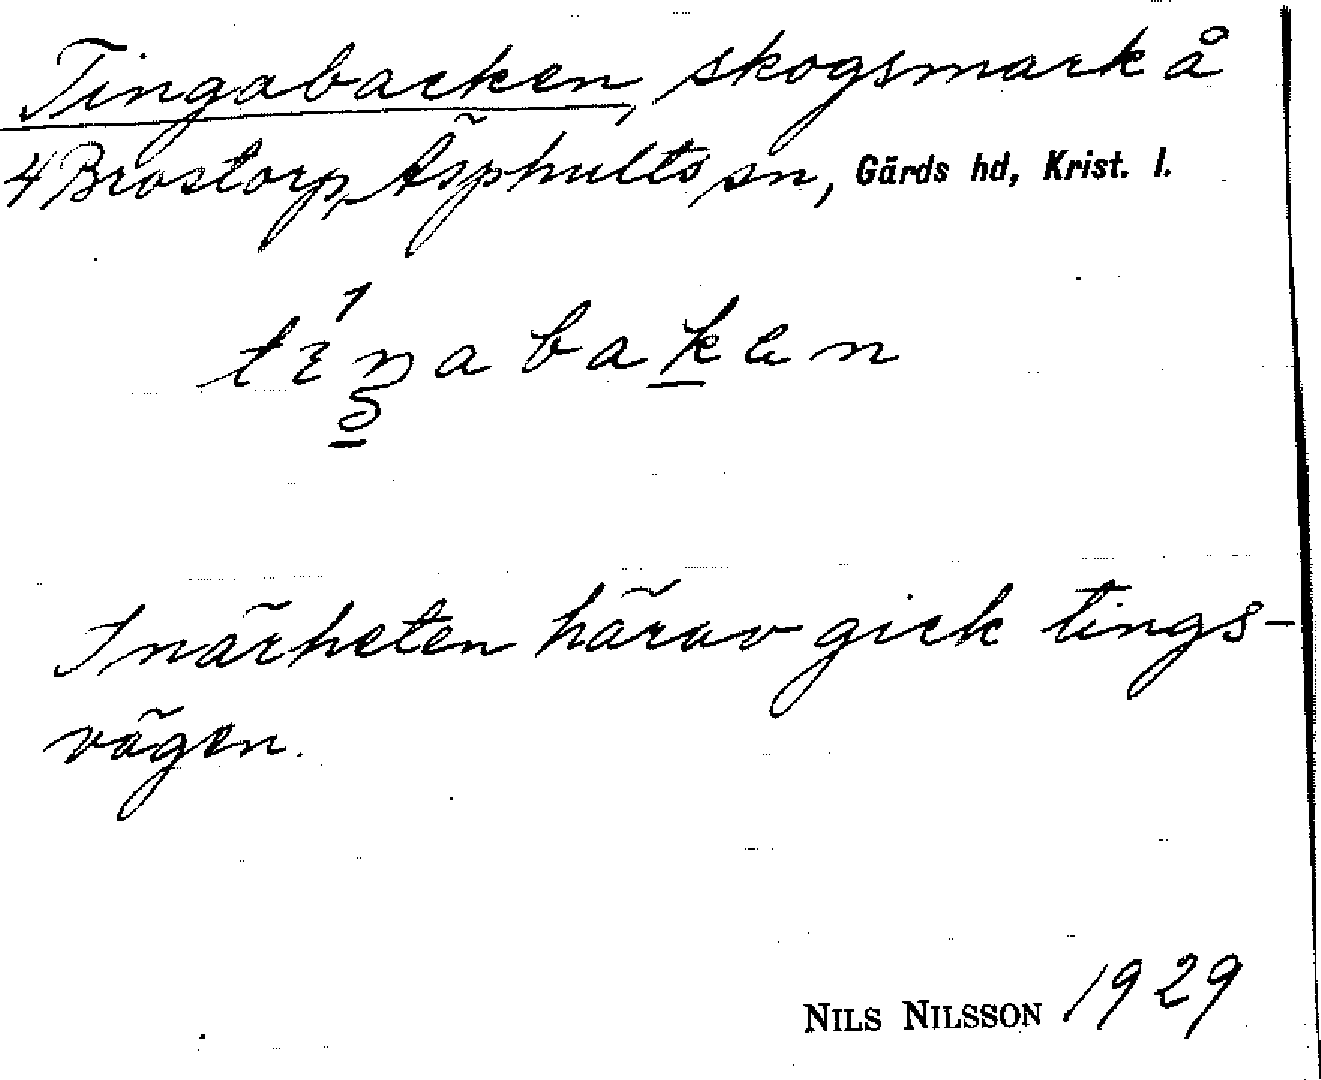 Tingabacken, skogsmark å
4 Brostorp, Äsphults sn, Gärds hd, Krist. l.
I närheten härav gick tings-
vägen.
NILS NILSSON 1929